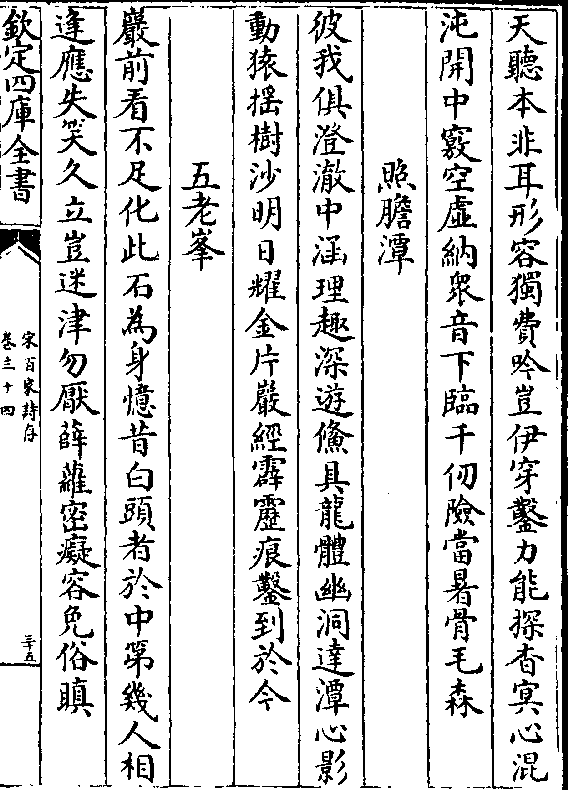 天聽本非耳形容獨費吟豈伊穿鑿力能探杳冥心混
沌開中竅空虛納衆音下臨千仞險當暑骨毛森
照膽潭
彼我俱澄澈中涵理趣深遊鯈具龍體幽洞達潭心影
動猿揺樹沙明日耀金片巖經霹靂痕鑿到於今
五老峯
巖前看不足化此石為身憶昔白頭者於中第幾人相
逢應失笑久立豈迷津勿厭薜蘿密癡容免俗瞋
欽定四庫全書
宋百家詩存
卷三十四
三十五